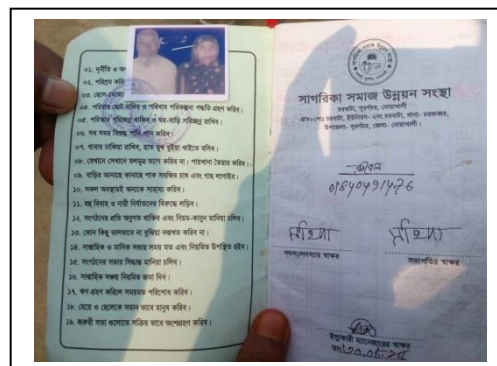 ০১. দুর্নীতি ও অ
০২. পরিশ্রম করি
০৩. ছেলে-মেয়ে
০৪. পরিবার ছোট রাখিব ও পরিবার পরিকল্পনা পদ্ধতি গ্রহণ করিব।
০৫. পরিষ্কার পরিচ্ছন্ন থাকিব ও ঘর-বাড়ি পরিচ্ছন্ন রাখিব।
০৬. সব সময় বিশুদ্ধ পানি পান করিব।
০৭. খাবার ঢাকিয়া রাখিব, হাত মুখ ধুইয়া খাইতে বসিব।
০৮. যেখানে সেখানে মলমূত্র ত্যাগ করিব না। পায়খানা তৈয়ার করিব।
০৯. বাড়ির আনাচে কানাচে শাক সবজির চাষ এবং গাছ লাগাইব।
১০. সকল অবস্থায়ই অন্যকে সাহায্য করিব।
১১. বহু বিবাহ ও নারী নির্যাতনের বিরুদ্ধে লড়িব।
১২. সংগঠনের প্রতি অনুগত থাকিব এবং নিয়ম-কানুন মানিয়া চলিব।
১৩. কোন কিছু ভালভাবে না বুঝিয়া দস্তখত করিব না।
১৪. সাপ্তাহিক ও মাসিক সভায় সময় মত এবং নিয়মিত উপস্থিত হইব।
১৫. সংগঠনের সভার সিদ্ধান্ত মানিয়া চলিব।
১৬. সাপ্তাহিক সঞ্চয় নিয়মিত জমা দিব।
১৭. ঋণ গ্রহণ করিলে সময়মত পরিশোধ করিব।
১৮. মেয়ে ও ছেলেকে সমান ভাবে মানুষ করিব।
১৯. জরুরী সভা গুলোতে সক্রিয় ভাবে অংশগ্রহণ করিব।
সাগরিকা সমাজ উন্নয়ন সংস্থা
চরবাটা, সুবর্ণচর, নোয়াখালী
গ্রাম+পোঃ চরবাটা, ইউনিয়ন- ২নং চরবাটা, থানা- চরজব্বর,
উপজেলা- সুবর্ণচর, জেলা- নোয়াখালী।
সদস্য/সদস্যার স্বাক্ষর
সভাপতির স্বাক্ষর
ইস্যুকারী ম্যানেজারের স্বাক্ষর